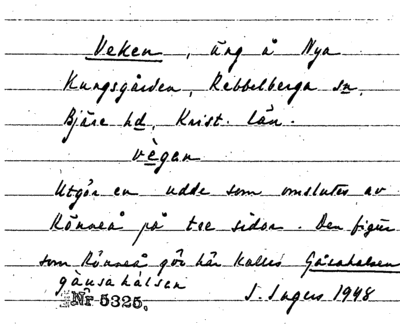 Veken, äng å Nya
Kungsgården, Rebbelberga sn,
Bjäre hd, Krist. län.
vègan
Utgör en udde som omslutes av
Rönneå på tre sidor. Den figur
som Rönneå gör här kallas Gåsahalsen
gåusahálsen
Nr 5325.
S. Ingers 1948